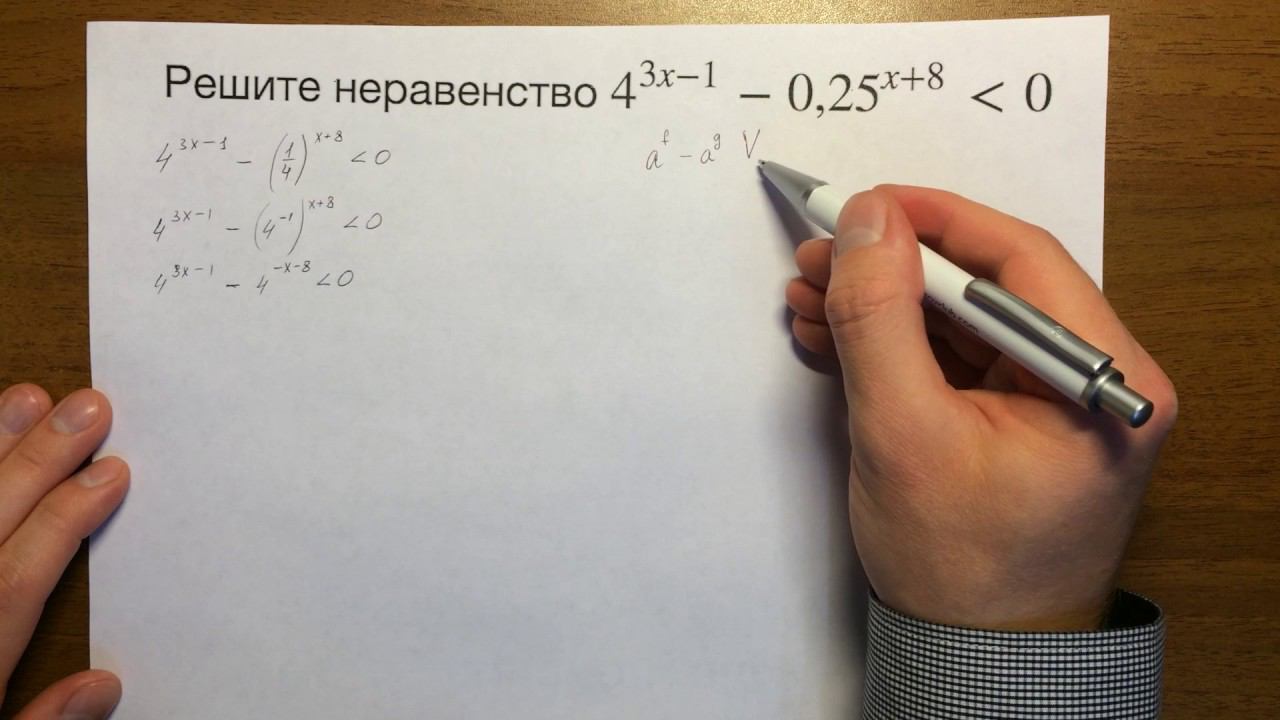 Решите неравенство 4^{3x−1} − 0,25^{x+8} < 0
4^{3x−1} − (1/4)^{x+8} < 0
a^f − a^g V
4^{3x−1} − (4^{−1})^{x+8} < 0
4^{3x−1} − 4^{−x−8} < 0